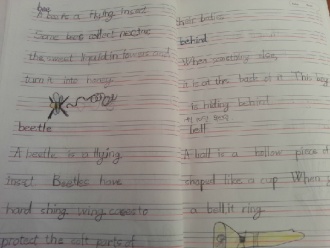 bee
A bee is a flying insect
Some bees collect nectar
the sweet liquid in flowers and
turn it into honey
beetle
A beetle is a flying
insect Beetles have
hard shing wing cases to
protect the soft parts of
their bodies
behind
When something else,
it is at the back of it This boy
is hiding behind
bell
A bell is a hollow piece of
shaped like a cup When
a bell it ring